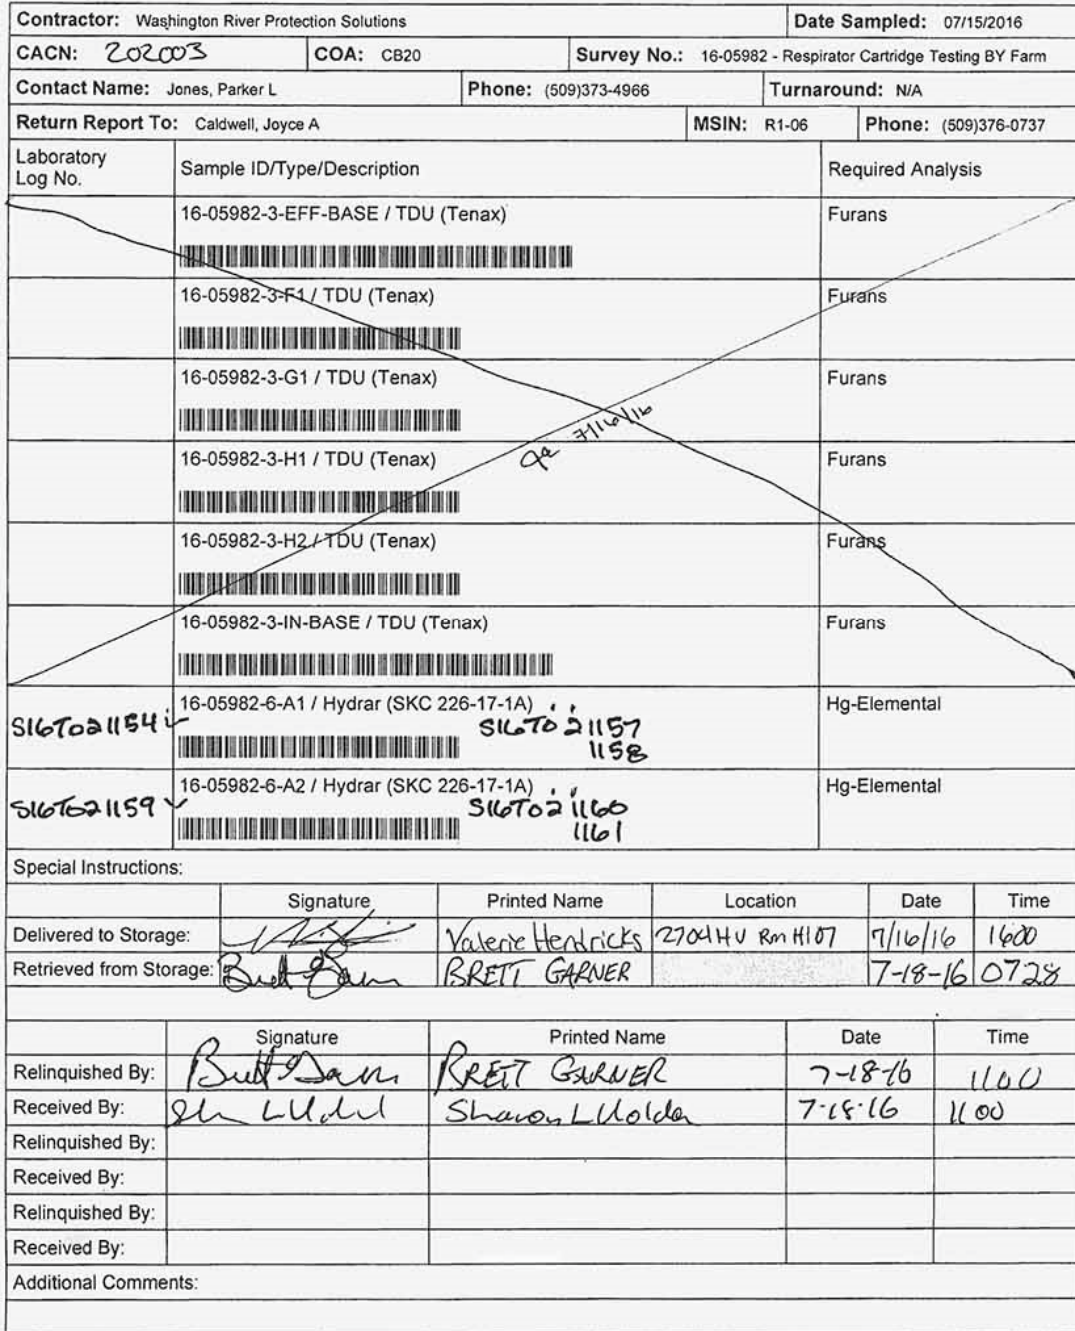 Contractor: Washington River Protection Solutions Date Sampled: 07/15/2016
CACN: 202003 COA: CB20 Survey No.: 16-05982 - Respirator Cartridge Testing BY Farm
Contact Name: Jones, Parker L Phone: (509)373-4966 Turnaround: N/A
Return Report To: Caldwell, Joyce A MSIN: R1-06 Phone: (509)376-0737
Laboratory Log No. Sample ID/Type/Description Required Analysis
16-05982-3-EFF-BASE / TDU (Tenax) Furans
16-05982-3-F1 / TDU (Tenax) Furans
16-05982-3-G1 / TDU (Tenax) Furans
7/16/16
16-05982-3-H1 / TDU (Tenax) Furans
16-05982-3-H2 / TDU (Tenax) Furans
16-05982-3-IN-BASE / TDU (Tenax) Furans
16-05982-6-A1 / Hydrar (SKC 226-17-1A) Hg-Elemental
S16T021154 S16T021157
1158
16-05982-6-A2 / Hydrar (SKC 226-17-1A) Hg-Elemental
S16T021159 S16T021160
1161
Special Instructions:
Signature Printed Name Location Date Time
Delivered to Storage: Valerie Hendricks 2704HV Rm H107 7/16/16 1600
Retrieved from Storage: Brett Garner BRETT GARNER 7-18-16 0728
Signature Printed Name Date Time
Relinquished By: Brett Garner BRETT GARNER 7-18-16 1100
Received By: Sharon L Holder 7-18-16 1100
Relinquished By:
Received By:
Relinquished By:
Received By:
Additional Comments: